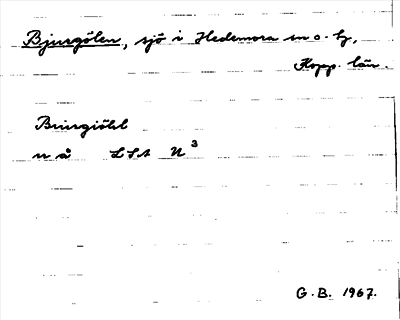 Bjurgölen, sjö i Hedemora sn o. hd,
Kopp. län.
Briurgiöhl
u å LSA U³
G.B. 1967.